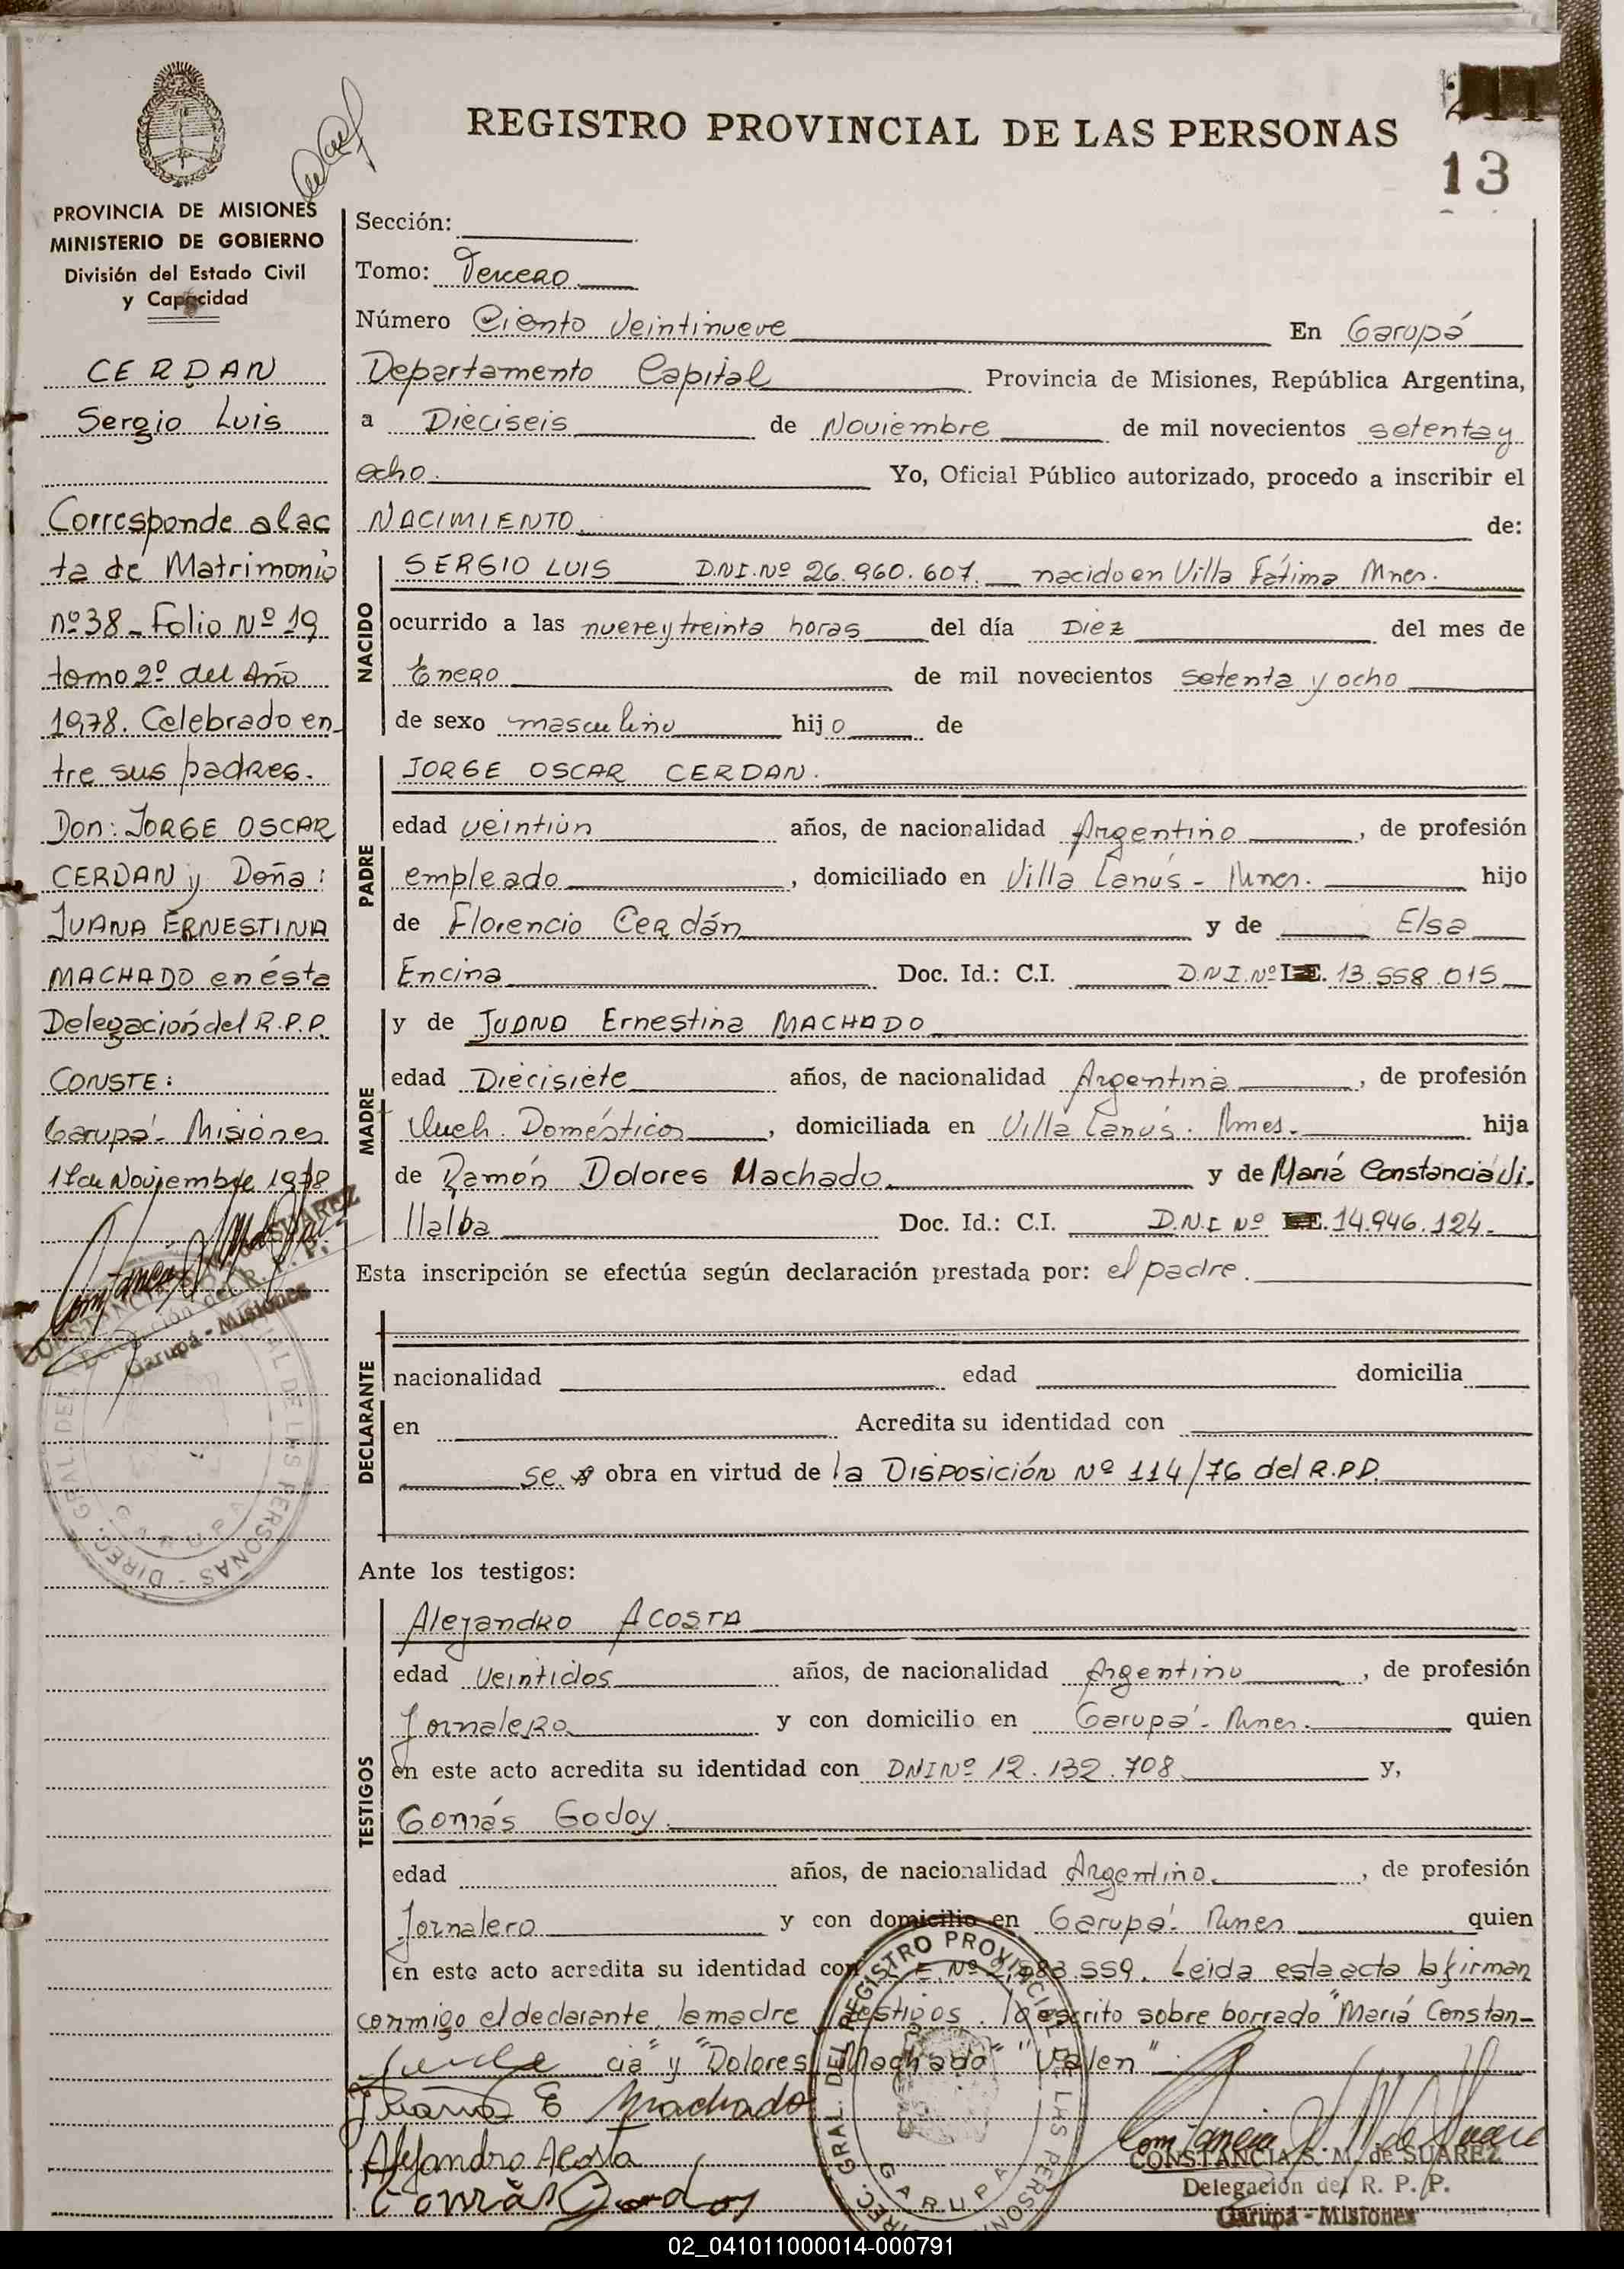 REGISTRO PROVINCIAL DE LAS PERSONAS
13
PROVINCIA DE MISIONES
MINISTERIO DE GOBIERNO
División del Estado Civil
y Capacidad
CERDAN
Sergio Luis
Corresponde a lac
ta de Matrimonio
nº 38 - Folio Nº 19
tomo 2º del Año
1978. Celebrado en
tre sus padres.
Don: JORGE OSCAR
CERDAN y Doña:
JUANA ERNESTINA
MACHADO en ésta
Delegación del R.P.P.
CONSTE:
Garupá - Misiones
17 de Noviembre 1978
Garupá - Misiones
Sección:
Tomo: Tercero
Número Ciento Veintinueve En Garupá
Departamento Capital Provincia de Misiones, República Argentina,
a Dieciseis de Noviembre de mil novecientos setenta y
ocho. Yo, Oficial Público autorizado, procedo a inscribir el
NACIMIENTO de:
NACIDO
SERGIO LUIS D.N.I. Nº 26.960.607. nacido en Villa Fátima Mnes.
ocurrido a las nueve y treinta horas del día Diez del mes de
Enero de mil novecientos setenta y ocho
de sexo masculino hijo de
PADRE
JORGE OSCAR CERDAN.
edad veintiún años, de nacionalidad Argentino, de profesión
empleado, domiciliado en Villa Lanús - Mnes. hijo
de Florencio Cerdán y de Elsa
Encina Doc. Id.: C.I. D.N.I. Nº 13.558.015
MADRE
y de JUANA Ernestina MACHADO
edad Diecisiete años, de nacionalidad Argentina, de profesión
Queh. Domésticos, domiciliada en Villa Lanús. Mnes. hija
de Ramón Dolores Machado y de María Constancia Vi-
llalba Doc. Id.: C.I. D.N.I Nº 14.946.124-
Esta inscripción se efectúa según declaración prestada por: el padre.
DECLARANTE
nacionalidad edad domicilia
en Acredita su identidad con
se obra en virtud de la DISPOSICIÓN Nº 114/76 del R.P.P.
Ante los testigos:
TESTIGOS
Alejandro ACOSTA
edad Veintidos años, de nacionalidad Argentino, de profesión
Jornalero y con domicilio en Garupá - Mnes. quien
en este acto acredita su identidad con DNI Nº 12.132.708 y,
Tomás Godoy
edad años, de nacionalidad Argentino, de profesión
Jornalero y con domicilio en Garupá - Mnes quien
en este acto acredita su identidad con Nº .559. Leída esta acta la firman
conmigo el declarante, la madre testigos. lo escrito sobre borrado "María Constan-
cia" y "Dolores Machado" "Valen"
Juana E Machado
Alejandro Acosta
Tomás Godoy
REGISTRO PROVINCIAL DE LAS PERSONAS
GARUPA
CONSTANCIA S. M. de SUAREZ
Delegación del R. P. P.
Garupá - Misiones
02_041011000014-000791